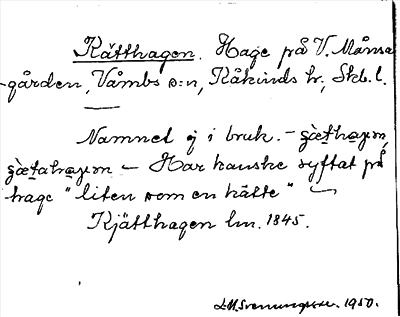 Kätthagen. Hage på V. Månsa
-gården, Våmbs s:n, Kåkinds hr, Skb. l.
Namnet ej i bruk. –
– Har kanske syftat på
hage "liten som en kätte"
Kjätthagen lm. 1845.
1950.